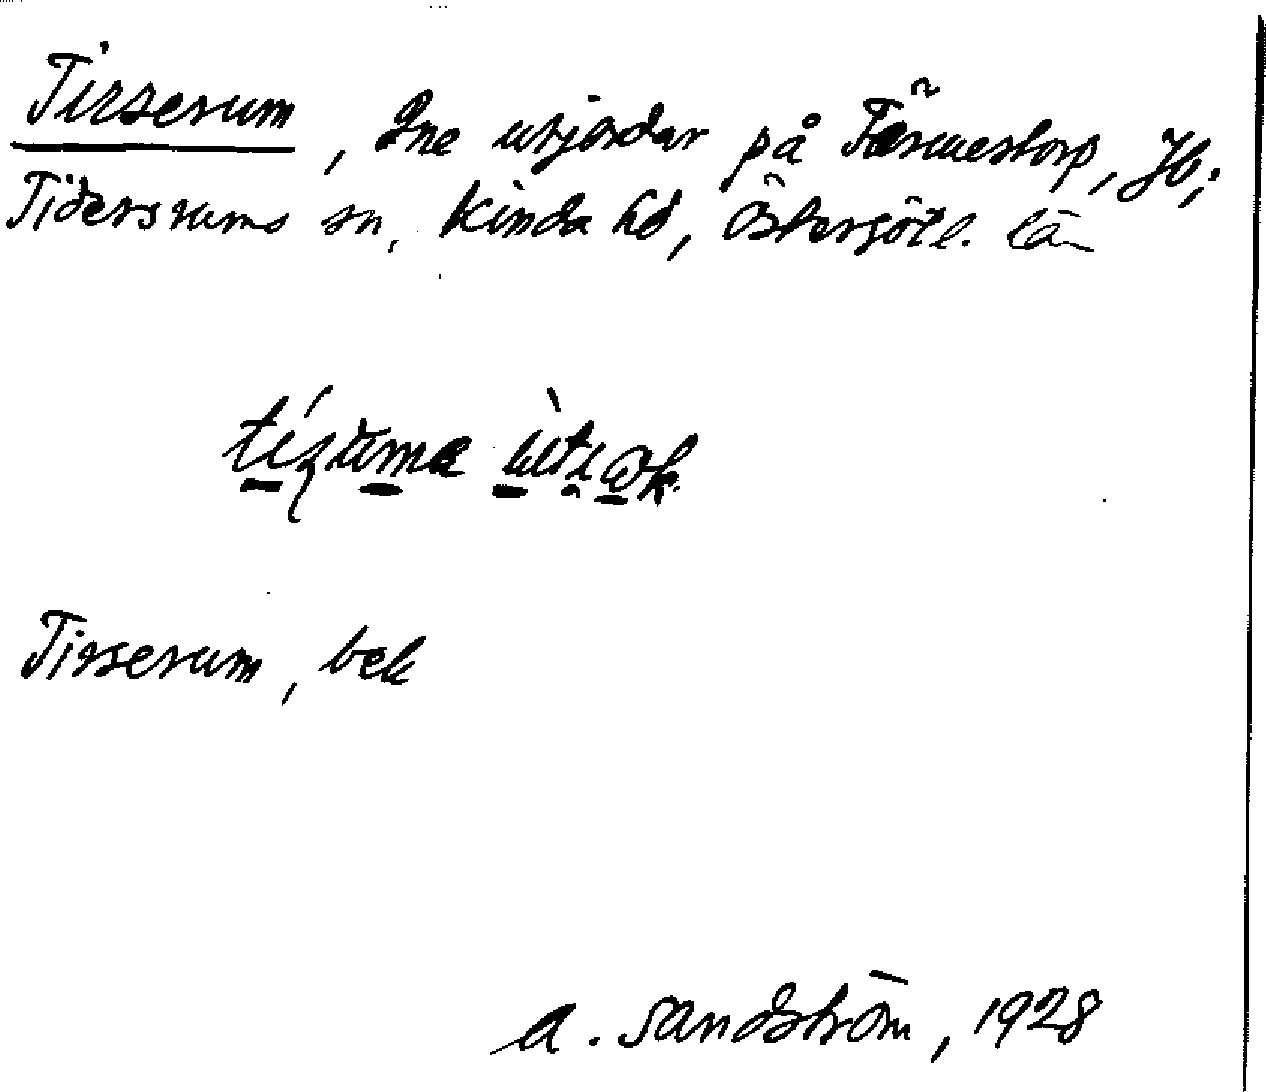 Tirserum, 2ne utjordar på Färmestorp, Jb;
Tidersrums sn, Kinda hd, Östergötl. län
Tirserum, bek
A. Sandström, 1928